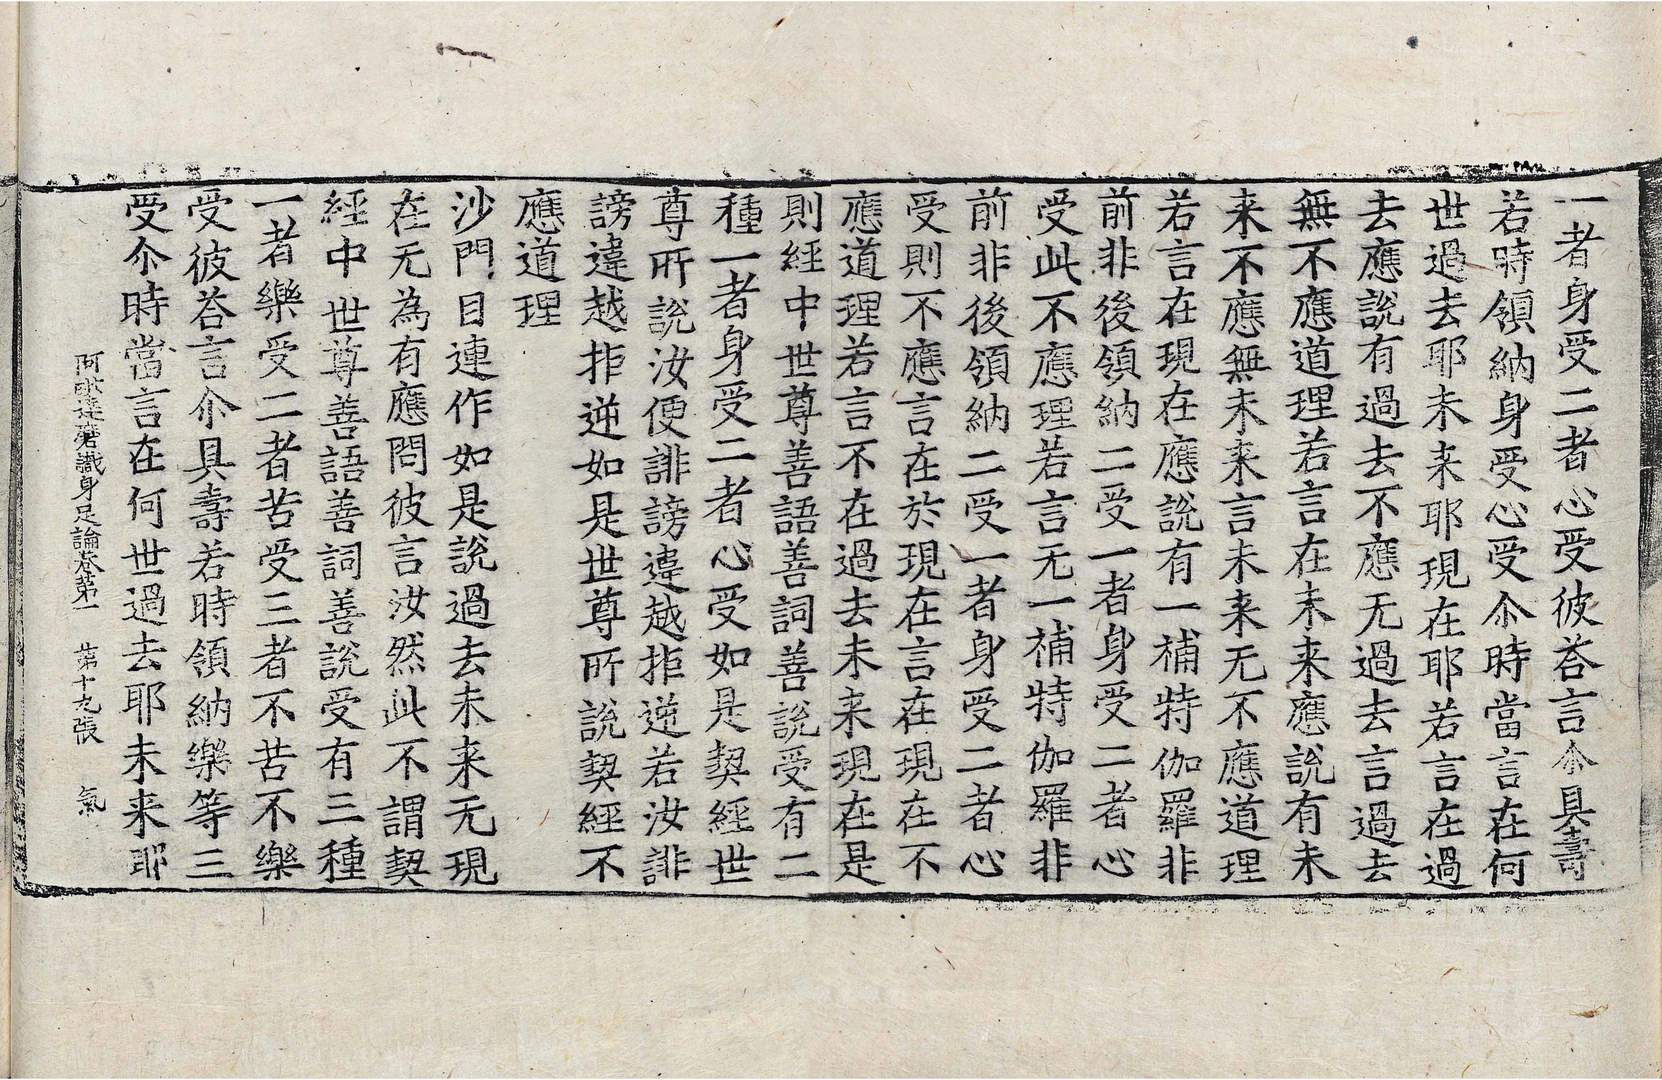 一者身受二者心受彼荅言尒具壽
若時領納身受心受尒時當言在何
世過去耶未来耶現在耶若言在過
去應說有過去不應无過去言過去
無不應道理若言在未来應說有未
来不應無未来言未来无不應道理
若言在現在應說有一補特伽羅非
前非後領納二受一者身受二者心
受此不應理若言无一補特伽羅非
前非後領納二受一者身受二者心
受則不應言在於現在言在現在不
應道理若言不在過去未来現在是
則經中世尊善語善詞善說受有二
種一者身受二者心受如是契經世
尊所說汝便誹謗違越拒逆若汝誹
謗違越拒逆如是世尊所說契經不
應道理
沙門目連作如是說過去未来无現
在无為有應問彼言汝然此不謂契
經中世尊善語善詞善說受有三種
一者樂受二者苦受三者不苦不樂
受彼荅言尒具壽若時領納樂等三
受尒時當言在何世過去耶未来耶
阿毗達磨識身足論卷第一　第十九張　氣